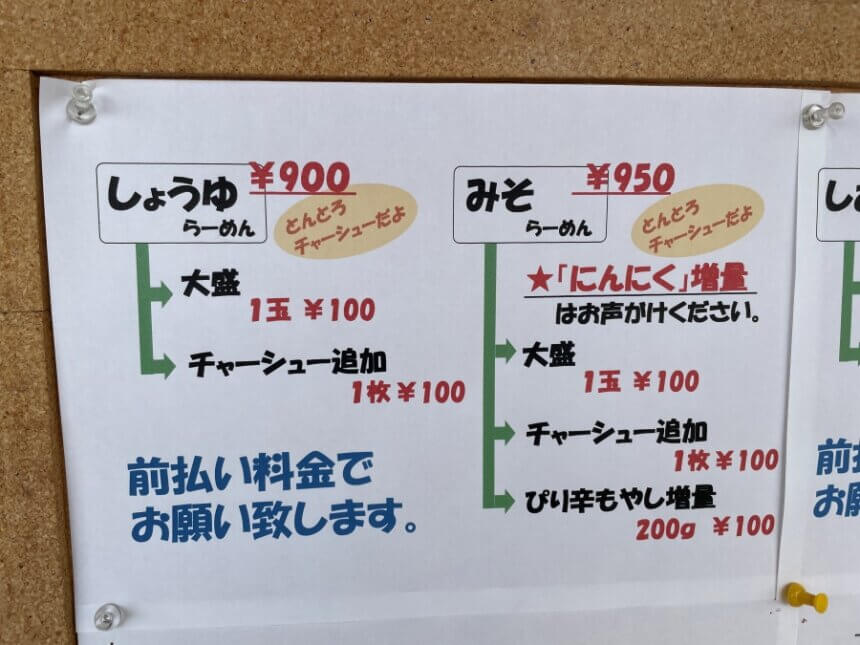 しょうゆ
らーめん
¥900
とんとろ
チャーシューだよ
大盛
1玉 ¥100
チャーシュー追加
1枚¥100
前払い料金で
お願い致します。
みそ
らーめん
¥950
とんとろ
チャーシューだよ
★「にんにく」増量
はお声がけください。
大盛
1玉 ¥100
チャーシュー追加
1枚¥100
ぴり辛もやし増量
200g ¥100
し
前
お願